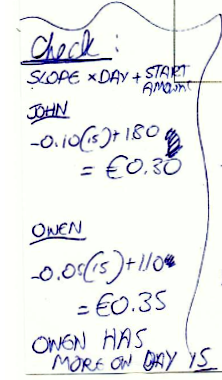 Check:
SLOPE × DAY + START
AMOUNT
JOHN
-0.10(15)+1.80
= €0.30
OWEN
-0.05(15)+1.10
= €0.35
OWEN HAS
MORE ON DAY 15